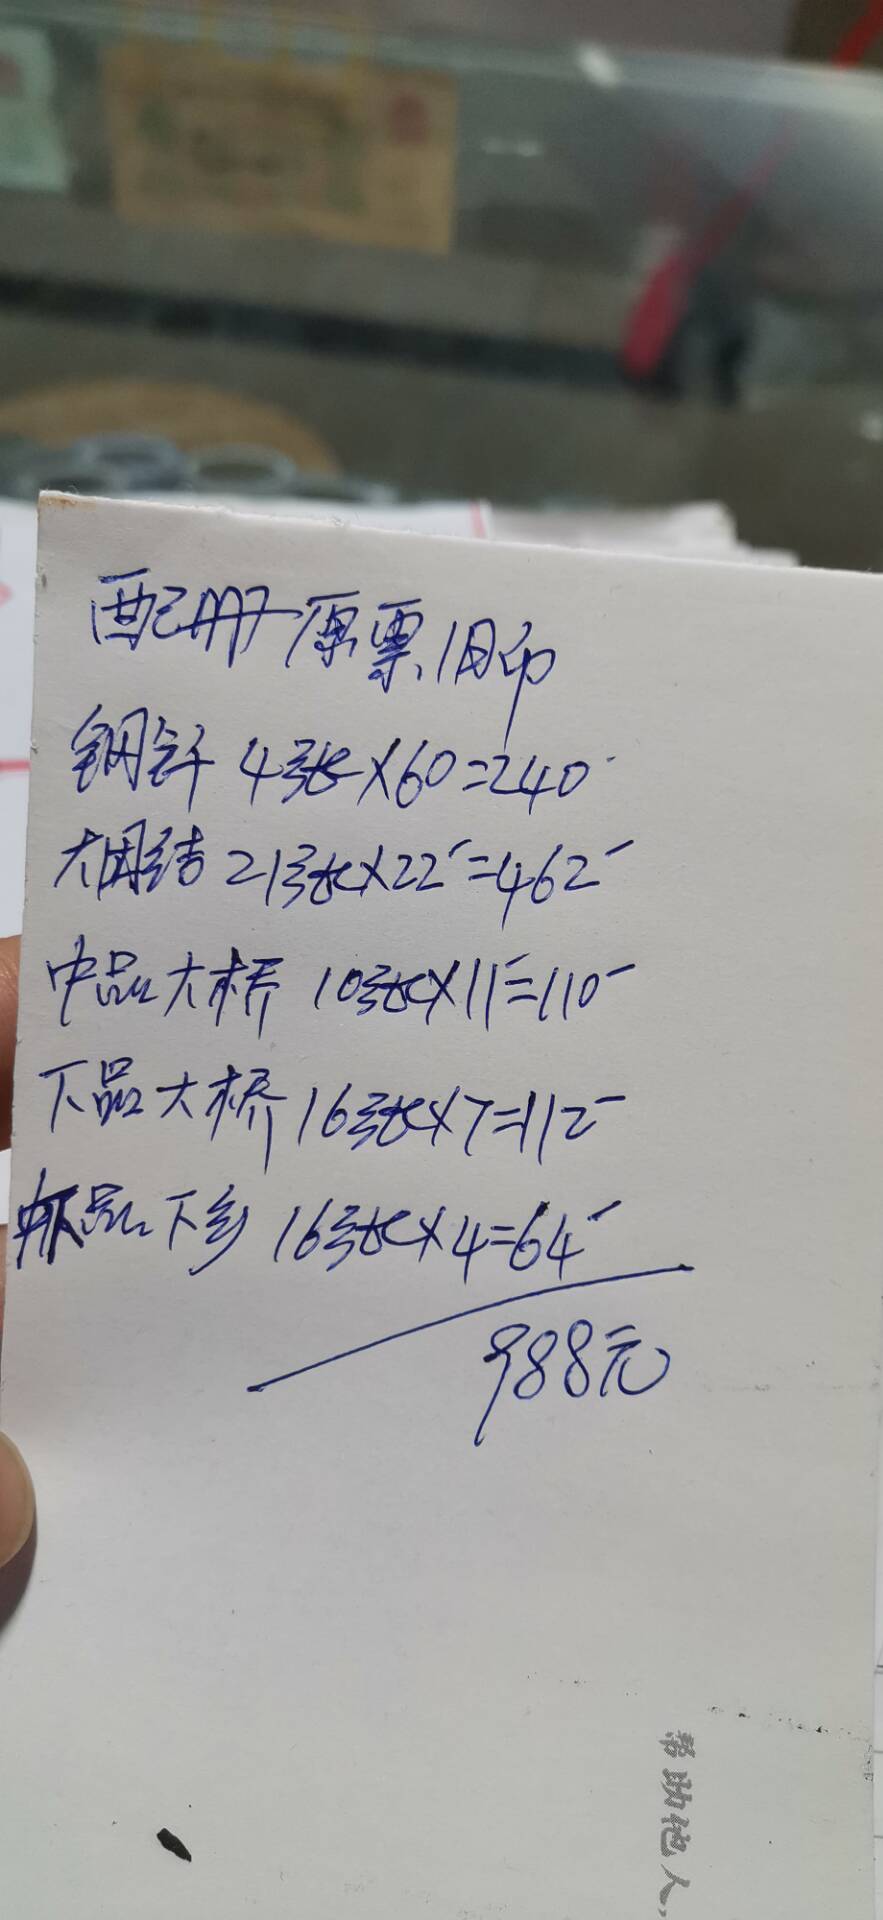 配册原票旧印
钢钎 4张×60=240
大团结 21张×22=462
中品大桥 10张×11=110
下品大桥 16张×7=112
下品下乡 16张×4=64
988元
帮助他人,